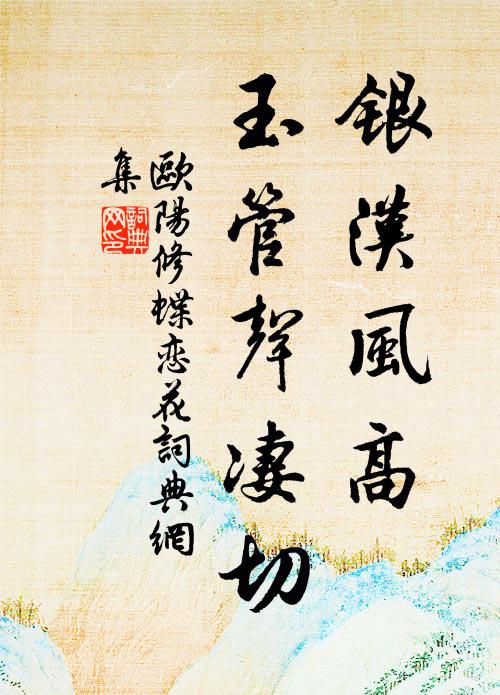 銀漢風高
玉管聲凄切
歐陽修蝶恋花詞典網
集
詞典
网印